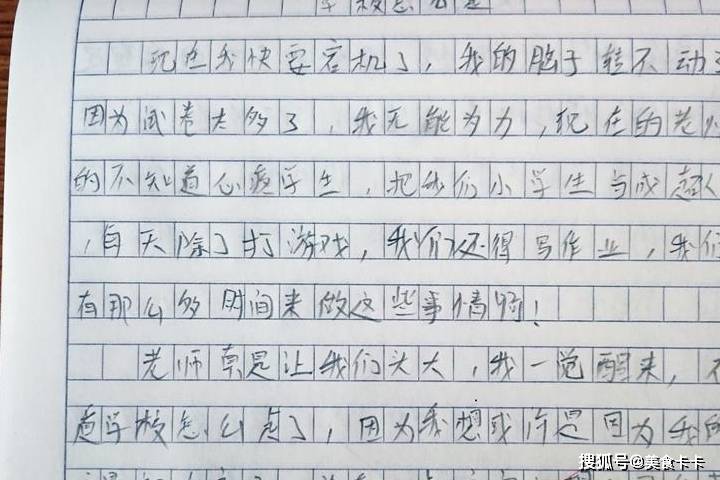 学校怎么追
现在我快要宕机了，我的脑子转不动了
因为试卷太多了，我无能为力，现在的老师
的不知道心疼学生，把我们小学生当成超人
，白天除了打游戏，我们还得写作业，我们
有那么多时间来做这些事情啊！
老师栗是让我们头大，我一觉醒来，不
道学校怎么追了，因为我想或许是因为我的
搜狐号@美食卡卡